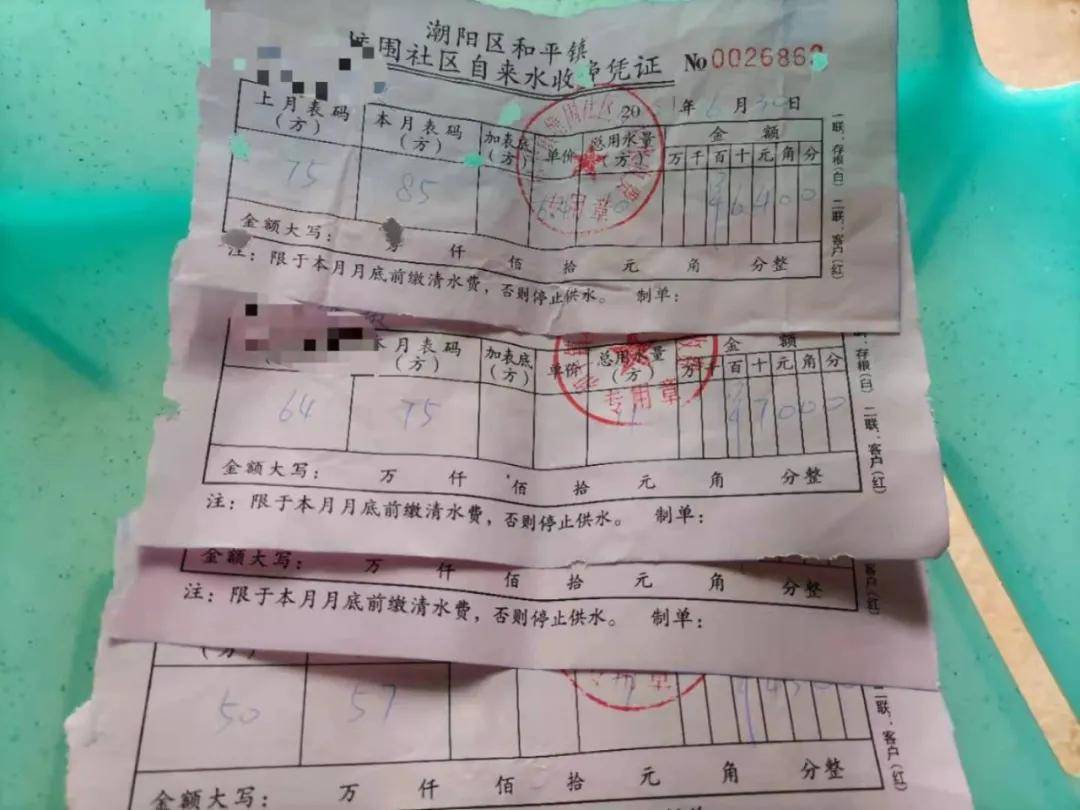 潮阳区和平镇
围社区自来水收 凭证 No 002686
20 年6月30日
上月表码(方) 本月表码(方) 加表底(方) 单价 总用水量(方) 金额
万 千 百 十 元 角 分
75 85 6 4 0 0
金额大写： 万 仟 佰 拾 元 角 分整
注：限于本月月底前缴清水费，否则停止供水。 制单：
一联：存根(白) 二联：客户(红)
专用章
本月表码(方) 加表底(方) 单价 总用水量(方) 金额
万 千 百 十 元 角 分
64 75 11 7 0 0 0
金额大写： 万 仟 佰 拾 元 角 分整
注：限于本月月底前缴清水费，否则停止供水。 制单：
存根(白) 二联：客户(红)
专用章
金额大写： 万 仟 佰 拾 元 角 分整
注：限于本月月底前缴清水费，否则停止供水。 制单：
客户(红)
(方)
50 57
金额大写： 万 仟 佰 拾 元 角 分整
二联：客户(红)